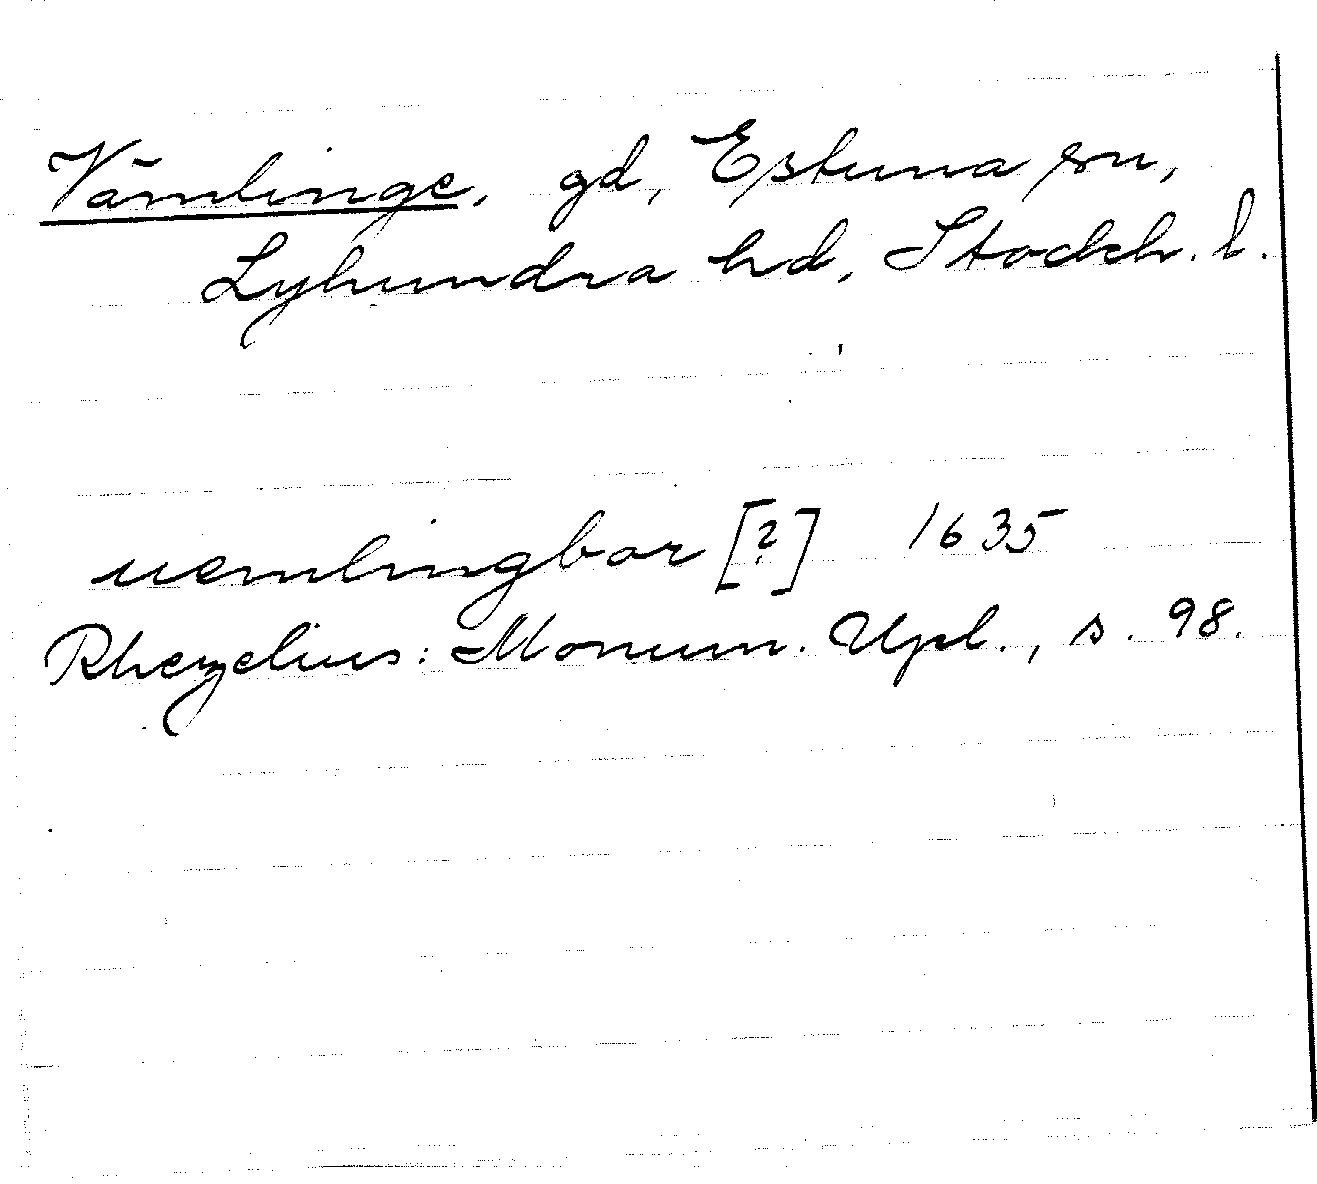 Vämlinge, gd, Estuna sn,
Lyhundra hd, Stockh. l.
uemlingbor [?] 1635
Rhezelius: Monum. Upl., s. 98.